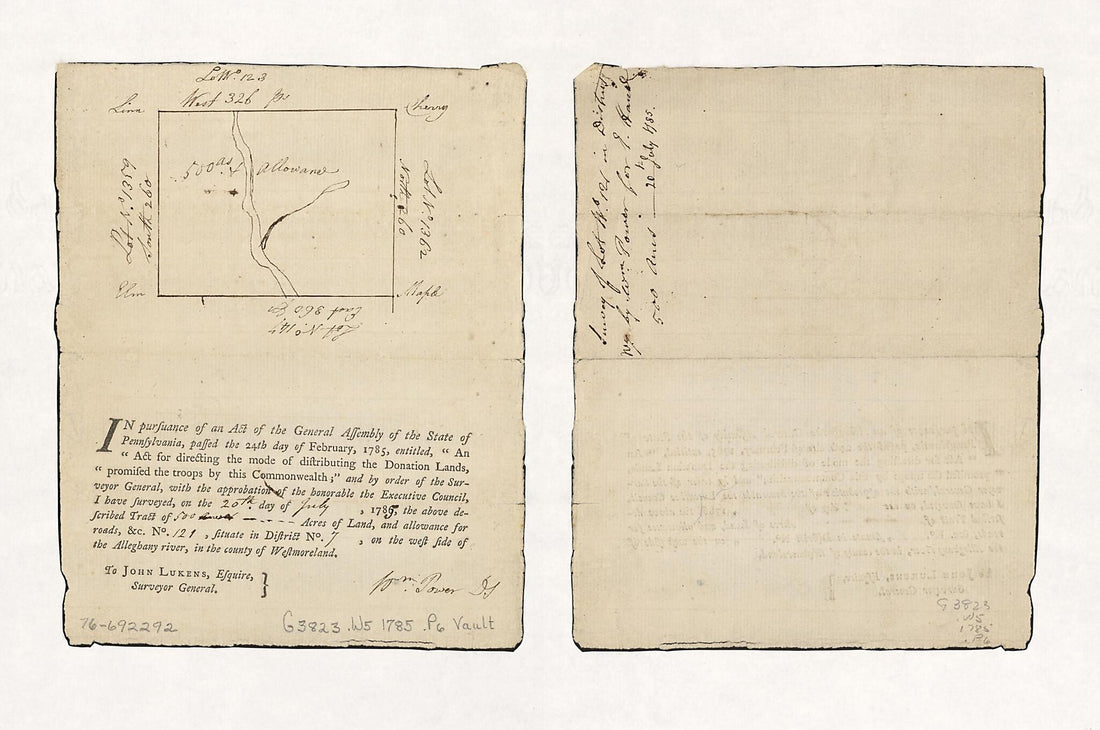 Lot No. 123
West 326 pr
Linn
Cherry
500 as. & Allowance
South 260
North 260
Lot No 1362
Elm
Maple
East
Lot No 147
IN pursuance of an Act of the General Aſſembly of the State of
Pennſylvania, paſſed the 24th day of February, 1785, entitled, “ An
“ Act for directing the mode of diſtributing the Donation Lands,
“ promiſed the troops by this Commonwealth;” and by order of the Sur-
veyor General, with the approbation of the honorable the Executive Council,
I have ſurveyed, on the 20th. day of July , 1785, the above de-
ſcribed Tract of 500 Acres of Land, and allowance for
roads, &c. No. 121 , ſituate in Diſtrict No. 7 , on the weſt ſide of
the Alleghany river, in the county of Weſtmoreland.
To JOHN LUKENS, Eſquire,
Surveyor General.
Wm. Power DS
76-692292
G3823 .W5 1785 .P6 Vault
Survey of Lot No. 121 in District
by Wm Power for
500 Acres 20th July 1785.
G 3823
.W5
1785
.P6